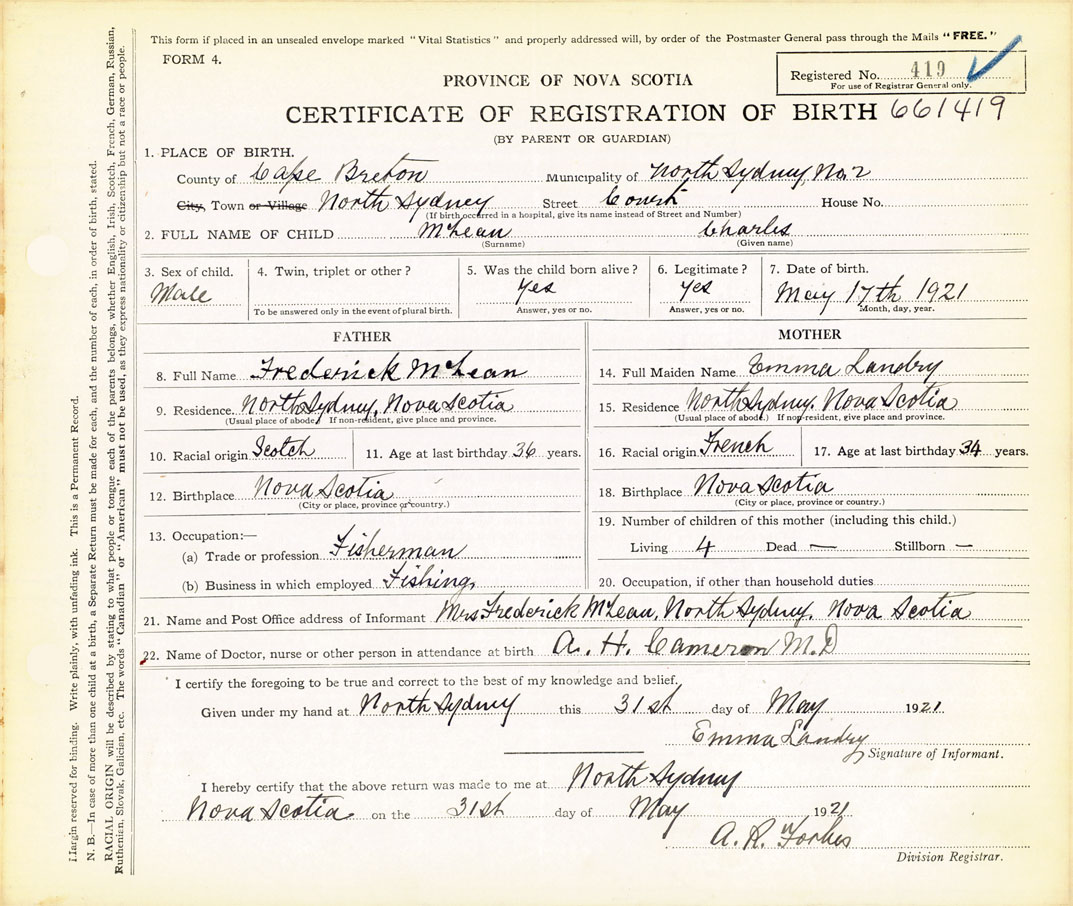 This form if placed in an unsealed envelope marked "Vital Statistics" and properly addressed will, by order of the Postmaster General pass through the Mails "FREE."
FORM 4.
Registered No. 419
For use of Registrar General only.
PROVINCE OF NOVA SCOTIA
CERTIFICATE OF REGISTRATION OF BIRTH 661419
(BY PARENT OR GUARDIAN)
1. PLACE OF BIRTH.
County of Cape Breton Municipality of North Sydney, No. 2
City, Town or Village North Sydney Street Court House No.
(If birth occurred in a hospital, give its name instead of Street and Number)
2. FULL NAME OF CHILD McLean Charles
(Surname) (Given name)
3. Sex of child. 4. Twin, triplet or other? 5. Was the child born alive? 6. Legitimate? 7. Date of birth.
Male Yes Yes May 17th 1921
To be answered only in the event of plural birth. Answer, yes or no. Answer, yes or no. Month, day, year.
FATHER
8. Full Name Frederick McLean
9. Residence. North Sydney, Nova Scotia
(Usual place of abode.) If non-resident, give place and province.
10. Racial origin Scotch 11. Age at last birthday 36 years.
12. Birthplace Nova Scotia
(City or place, province or country.)
13. Occupation:—
(a) Trade or profession Fisherman
(b) Business in which employed Fishing
MOTHER
14. Full Maiden Name Emma Landry
15. Residence North Sydney, Nova Scotia
(Usual place of abode.) If non-resident, give place and province.
16. Racial origin French 17. Age at last birthday 34 years.
18. Birthplace Nova Scotia
(City or place, province or country.)
19. Number of children of this mother (including this child.)
Living 4 Dead — Stillborn —
20. Occupation, if other than household duties
21. Name and Post Office address of Informant Mrs Frederick McLean, North Sydney, Nova Scotia
22. Name of Doctor, nurse or other person in attendance at birth A. H. Cameron M.D
I certify the foregoing to be true and correct to the best of my knowledge and belief.
Given under my hand at North Sydney this 31st day of May 1921.
Emma Landry
Signature of Informant.
I hereby certify that the above return was made to me at North Sydney
Nova Scotia on the 31st day of May 1921
A. R. Forbes
Division Registrar.
Margin reserved for binding. Write plainly, with unfading ink. This is a Permanent Record.
N. B.—In case of more than one child at a birth, a Separate Return must be made for each, and the number of each, in order of birth, stated.
RACIAL ORIGIN will be described by stating to what people or tongue each of the parents belongs, whether English, Irish, Scotch, French, German, Russian,
Ruthenian, Slovak, Galician, etc. The words "Canadian" or "American" must not be used, as they express nationality or citizenship but not a race or people.